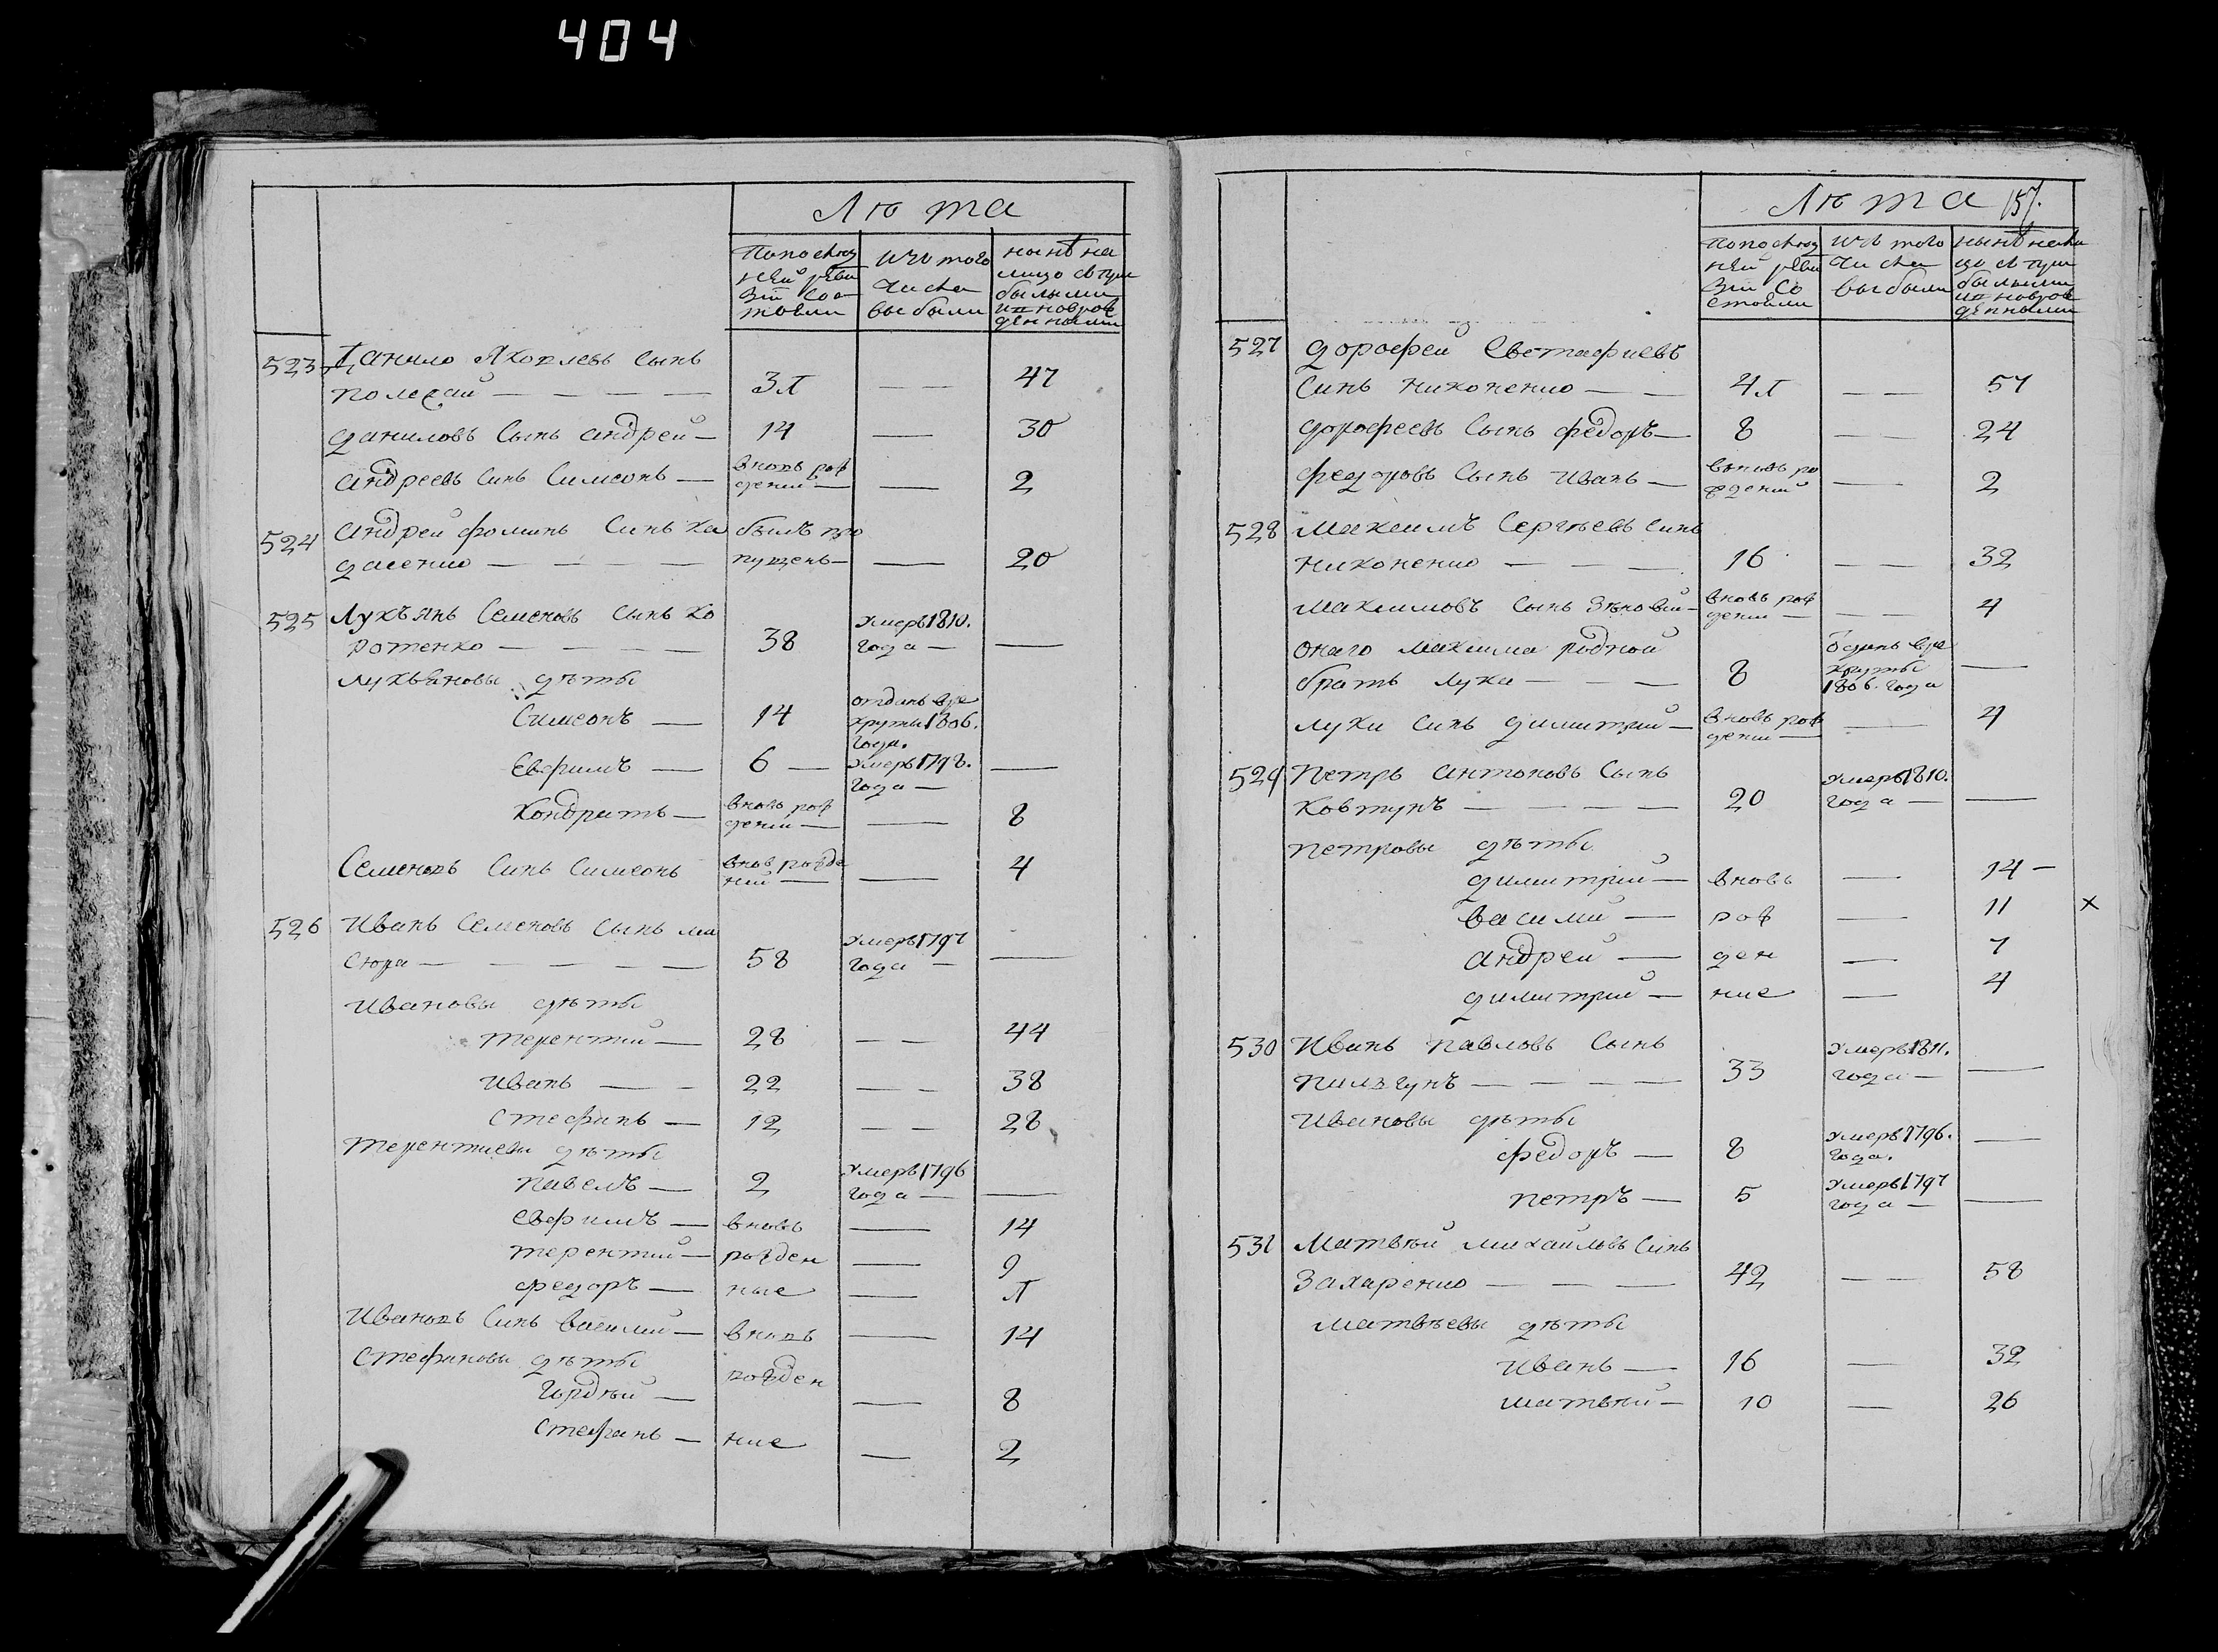 404
Лѣта
Попослѣд
ней реви
зіи сос
тояли
изъ того
числа
выбыли
нынѣ на
лицо съ при
былыми
и новорож
денными
523 Данило Яковлевъ сынъ
полежай — — — — 31 — — 47
Даниловъ сынъ андрей — 14 — 30
андреевъ синъ Симеонъ — вновь рож
дений — — 2
524 андрей фоминъ синъ ка былъ про
дасенко — — — — пущенъ — — 20
525 Лукъянъ Семеновъ сынъ ко
ротенко — — — — 38 Умеръ 1810.
года — —
лукьяновы дѣты
Симеонъ — 14 отданъ вре
круты 1806.
года.
Евфимъ — 6 — Умеръ 1798.
года — —
Кондратъ — вновь рож
дений — — 8
Семеновъ синъ Симеонъ внов рожде
ний — — 4
526 Иванъ Семеновъ сынъ ма
сюра — — — — — 58 Умеръ 1797
года — —
Ивановы дѣты
терентий — 28 — — 44
Иванъ — — 22 — — 38
Стефанъ — 12 — — 28
терентиевы дѣты
павелъ — 2 Умеръ 1796
года — —
Евфимъ — вновь — 14
терентий — рожден — 9
федоръ — ные — 1
Ивановъ синъ василий — вновь — 14
Стефановы дѣты рожден
Гордѣй — — 8
Стефанъ — ние — 2
Лѣта 157.
Попослѣд
ней реви
зіи со
стояли
изъ того
числа
выбыли
нынѣ нали
цо съ при
былыми
и новорож
денными
527 Дорофей Евстафиевъ
синъ Никоненко — — 41 — — 57
дорофеевъ сынъ федоръ — 8 — — 24
федоровъ сынъ Иванъ — вновь ро
ждений — 2
528 Максимъ Сергѣевъ синъ
Никоненко — — — 16 — — 32
максимовъ сынъ Зѣновий — вновь рож
дений — — — 4
онаго максима родной
братъ лука — — — 8 отданъ вре
круты
1806. года —
луки синъ димитрий — вновь рож
дений — — 4
529 Петръ антоновъ сынъ
ковтунъ — — — — 20 Умеръ 1810.
года — —
петровы дѣты
димитрий — вновь — 14 —
василий — рож — 11 x
андрей — ден — 7
димитрий — ние — 4
530 Иванъ павловъ сынъ
пилзгунъ — — — — 33 Умеръ 1811.
года — —
Ивановы дѣты
федоръ — 8 Умеръ 1796.
года. —
петръ — 5 Умеръ 1797
года — —
531 Матвѣй михайловъ синъ
Захаренко — — — 42 — — 58
матвѣевы дѣты
Иванъ — 16 — 32
матвѣй — 10 — 26